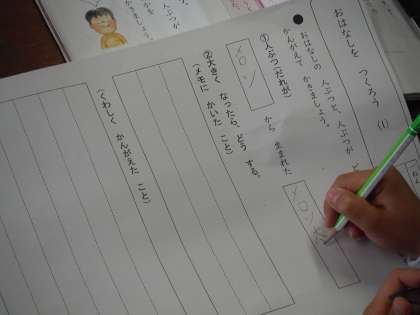 おはなしを つくろう (1)
● おはなしの 人ぶつと、人ぶつが
かんがえて かきましょう。
①人ぶつ(だれが)
メロン
から 生まれた
メロン
②大きく なったら、どう する。
(メモに かいた こと)
(くわしく かんがえた こと)